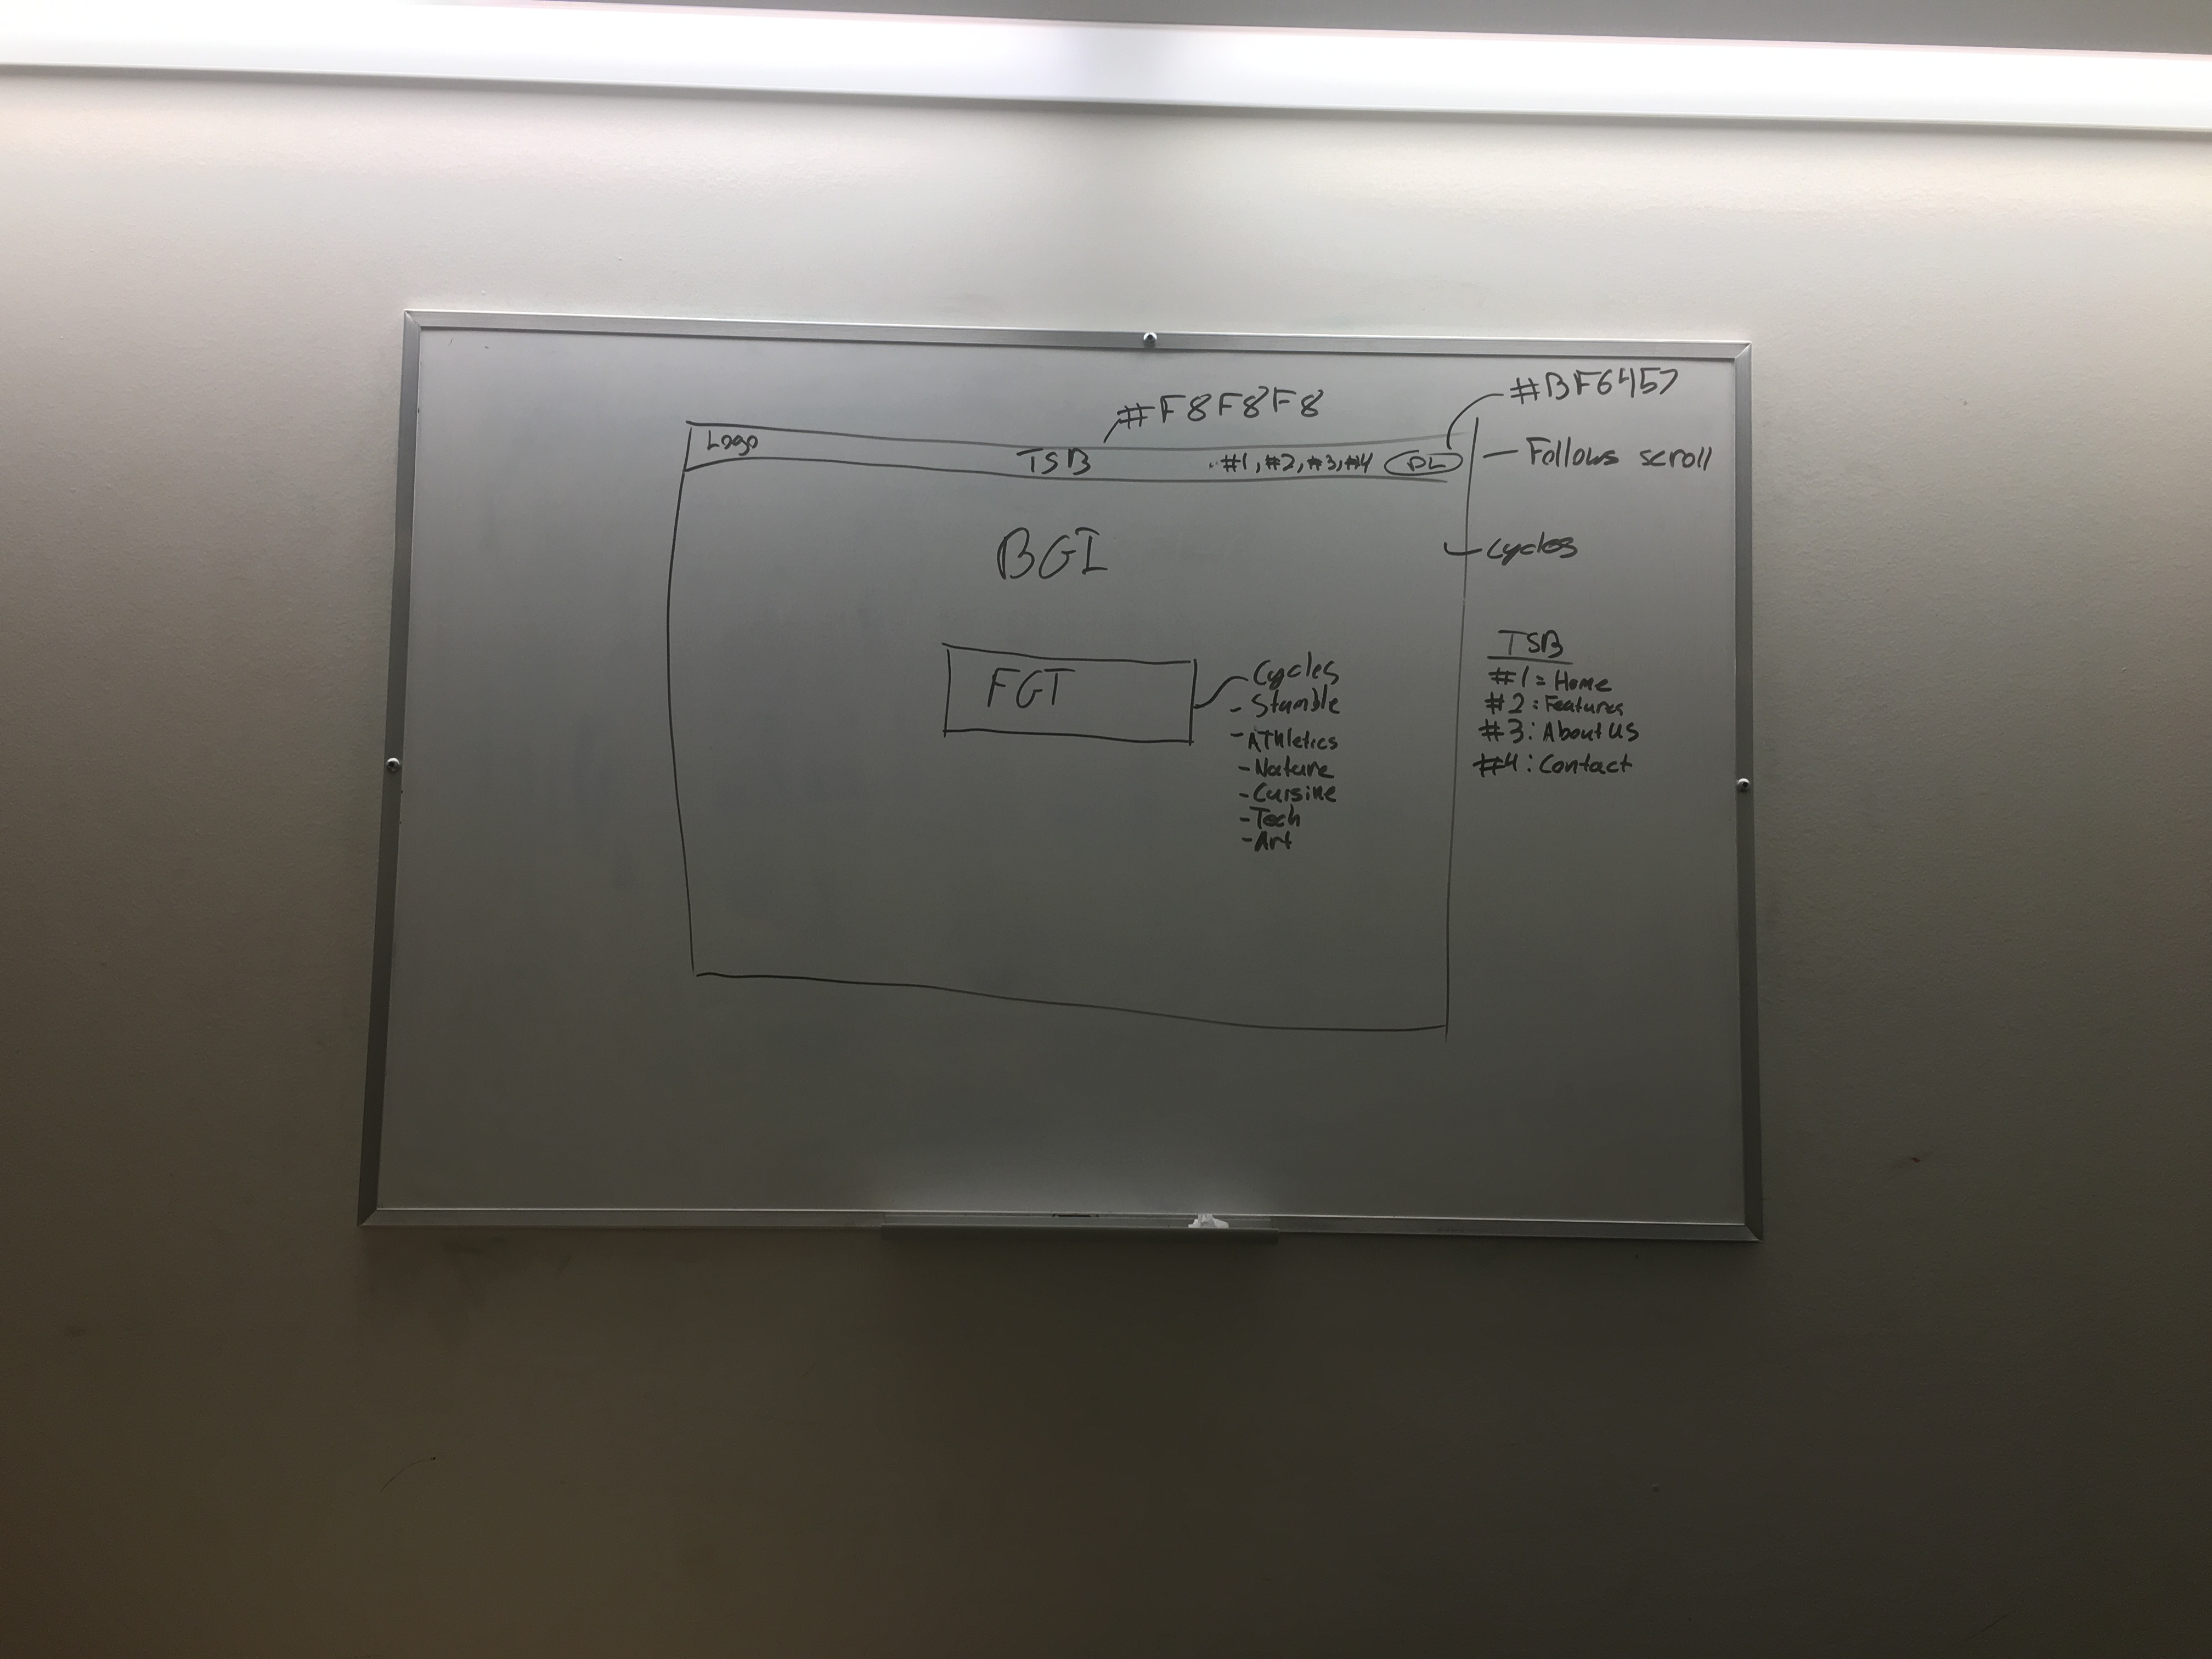 #F8F8F8
#BF6457
Logo
TSB
#1, #2, #3, #4
DL
Follows scroll
BGI
Cycles
FGT
Cycles
- Stumble
- Athletics
- Nature
- Cuisine
- Tech
- Art
TSB
#1 = Home
#2 : Features
#3 : About us
#4 : Contact